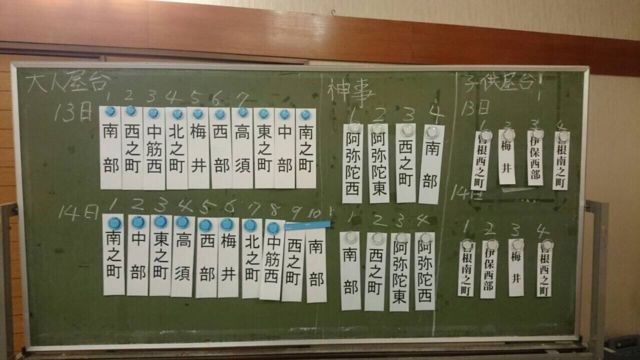 大人屋台
13日
1 2 3 4 5 6 7
南部
西之町
中筋西
北之町
梅井
西部
高須
東之町
中部
南之町
14日
1 2 3 4 5 6 7 8 9 10
南之町
中部
東之町
高須
西部
梅井
北之町
中筋西
西之町
南部
神事
1 2 3 4
阿弥陀西
阿弥陀東
西之町
南部
1 2 3 4
南部
西之町
阿弥陀東
阿弥陀西
子供屋台
13日
1 2 3 4
曽根西之町
梅井
伊保西部
曽根南之町
14日
1 2 3 4
曽根南之町
伊保西部
梅井
曽根西之町